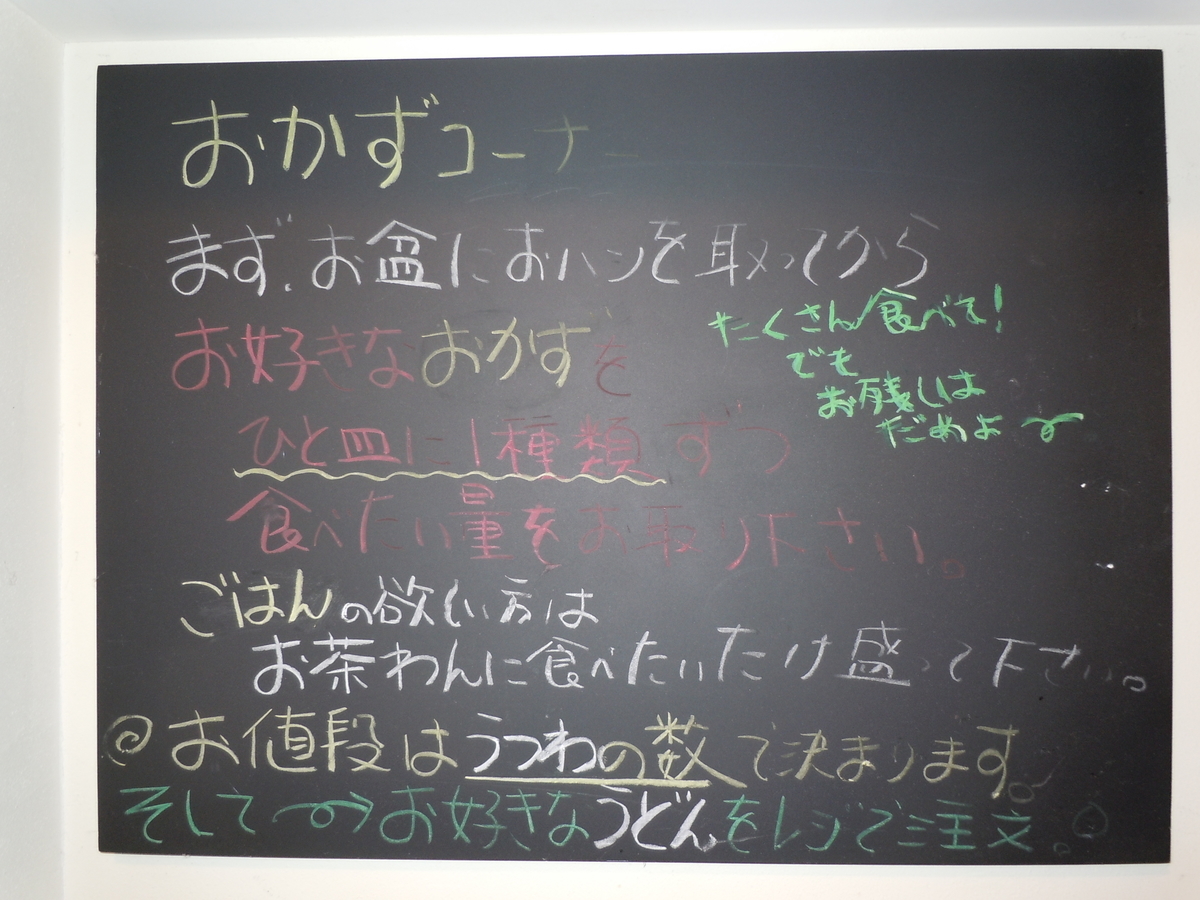 おかずコーナー
まず、お盆におハシを取ってから
お好きなおかずを
ひと皿に1種類ずつ
食べたい量をお取り下さい。
たくさん食べて!
でも
お残しは
だめよ〜
ごはんの欲しい方は
お茶わんに食べたいだけ盛って下さい。
@お値段はうつわの数で決まります。
そして→お好きなうどんをレジで注文。